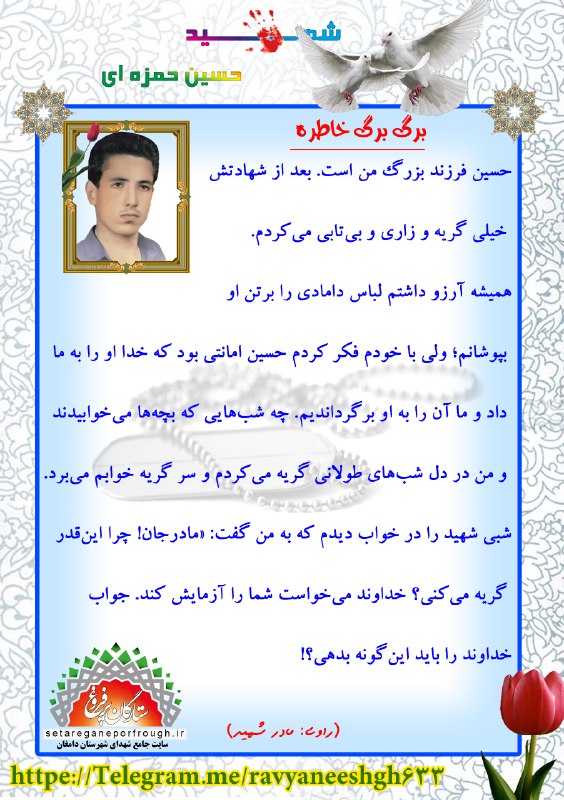 شهید
حسین حمزه ای
برگ برگ خاطره
حسین فرزند بزرگ من است. بعد از شهادتش
خیلی گریه و زاری و بی‌تابی می‌کردم.
همیشه آرزو داشتم لباس دامادی را برتن او
بپوشانم؛ ولی با خودم فکر کردم حسین امانتی بود که خدا او را به ما
داد و ما آن را به او برگرداندیم. چه شب‌هایی که بچه‌ها می‌خوابیدند
و من در دل شب‌های طولانی گریه می‌کردم و سر گریه خوابم می‌برد.
شبی شهید را در خواب دیدم که به من گفت: «مادرجان! چرا این‌قدر
گریه می‌کنی؟ خداوند می‌خواست شما را آزمایش کند. جواب
خداوند را باید این‌گونه بدهی؟!
(راوی: مادر شهید)
ستارگان پرفروغ
setareganeporfrough.ir
سایت جامع شهدای شهرستان دامغان
https://Telegram.me/ravyaneeshgh۶۳۳